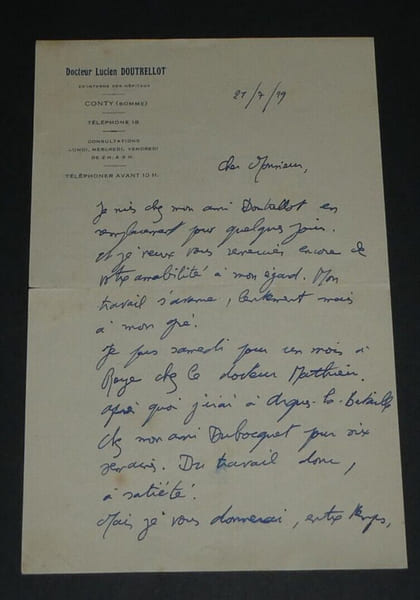 Docteur Lucien DOUTRELLOT
EX-INTERNE DES HÔPITAUX
CONTY (SOMME)
TÉLÉPHONE 18
CONSULTATIONS
LUNDI, MERCREDI, VENDREDI
DE 2 H. A 5 H.
TÉLÉPHONER AVANT 10 H.
21/7/
Cher Monsieur,
Je suis chez mon ami Doutrellot en
remplacement pour quelques jours.
et je veux vous remercier encore de
votre amabilité à mon égard. Mon
travail s'avance, lentement mais
à mon gré.
Je pars samedi pour un mois à
Roye chez le docteur Matthieu.
après quoi j'irai à Arques-la-Bataille
chez mon ami Dubocquet pour six
semaines. Du travail donc,
à satiété.
Mais je vous donnerai, entre temps,